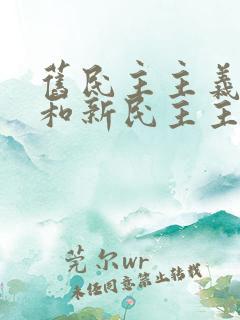 舊民主主義
和新民主主
莞尔wr
未经同意禁止转载